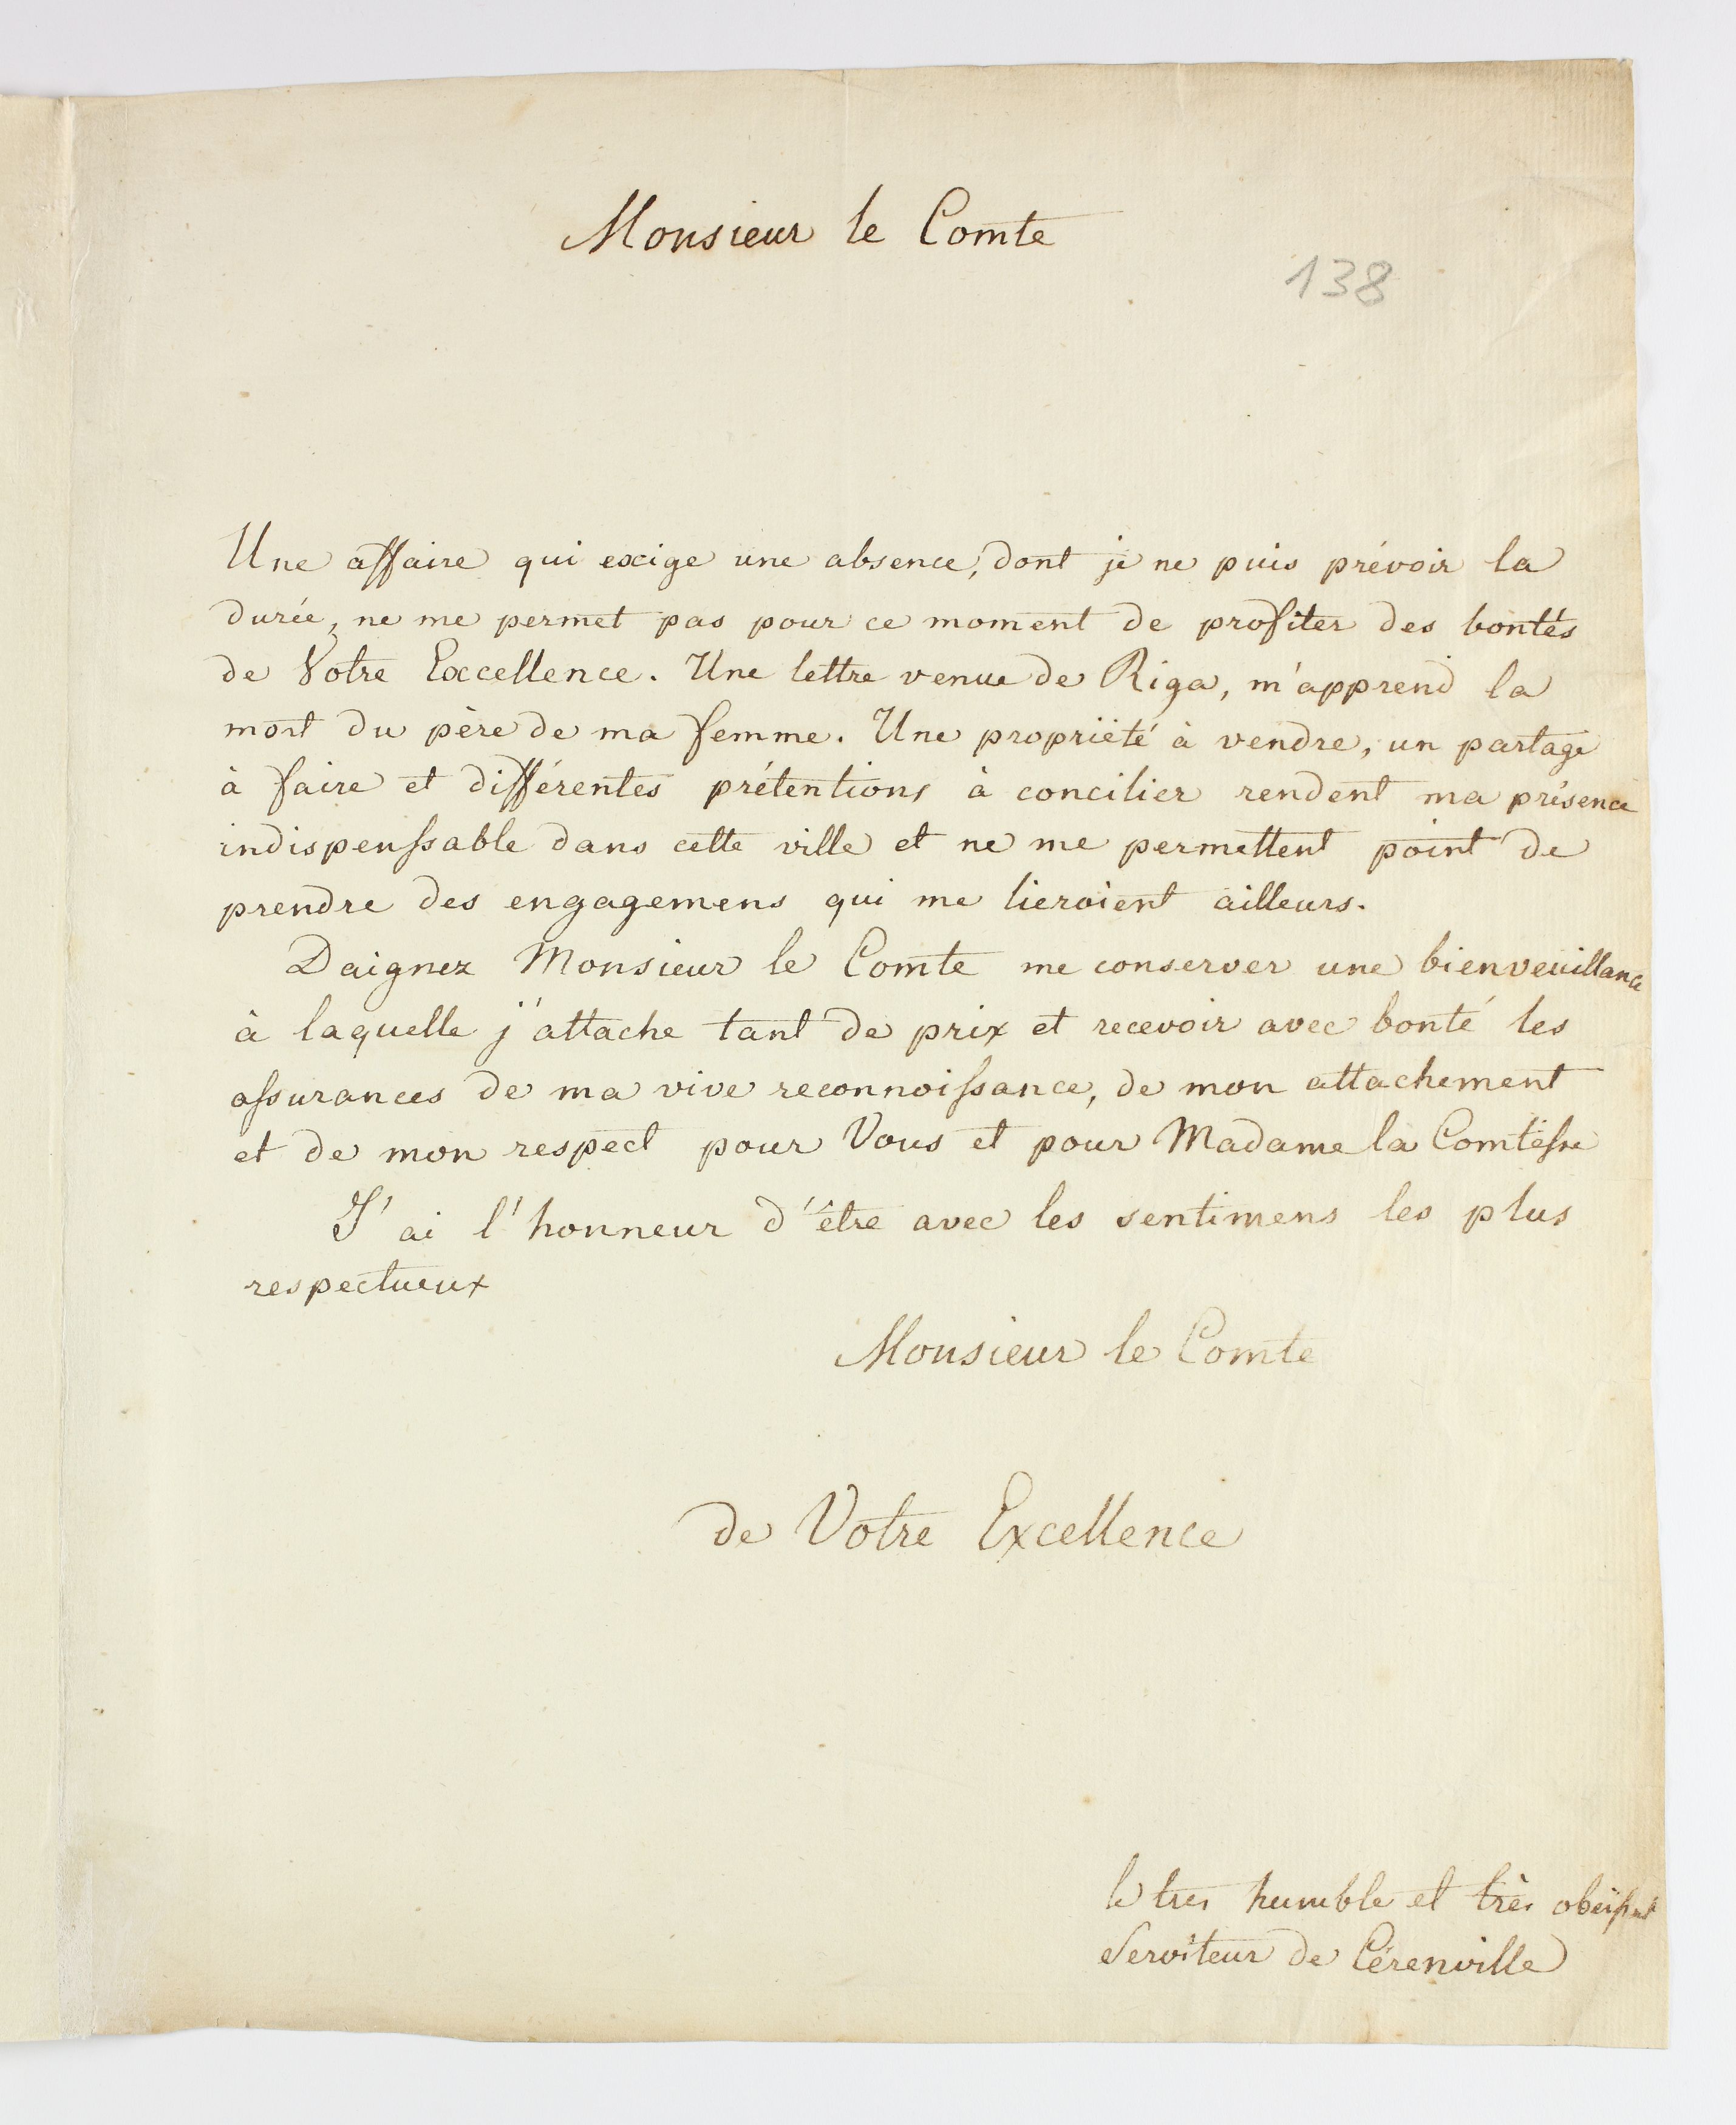 Monsieur le Comte
138
Une affaire qui exige une absence, dont je ne puis prévoir la
durée, ne me permet pas pour ce moment de profiter des bontés
de Votre Excellence. Une lettre venue de Riga, m'apprend la
mort du père de ma femme. Une propriëté à vendre, un partage
à faire et différentes prétentions à concilier rendent ma présence
indispenſsable dans cette ville et ne me permettent point de
prendre des engagemens qui me lieroient ailleurs.
Daignez Monsieur le Comte me conserver une bienveuillance
à laquelle j'attache tant de prix et recevoir avec bonté les
aſsurances de ma vive reconnoiſsance, de mon attachement
et de mon respect pour Vous et pour Madame la Comteſse
J'ai l'honneur d'être avec les sentimens les plus
respectueux
Monsieur le Comte
de Votre Excellence
le tres humble et très obéiſsant
Serviteur de Cérenville